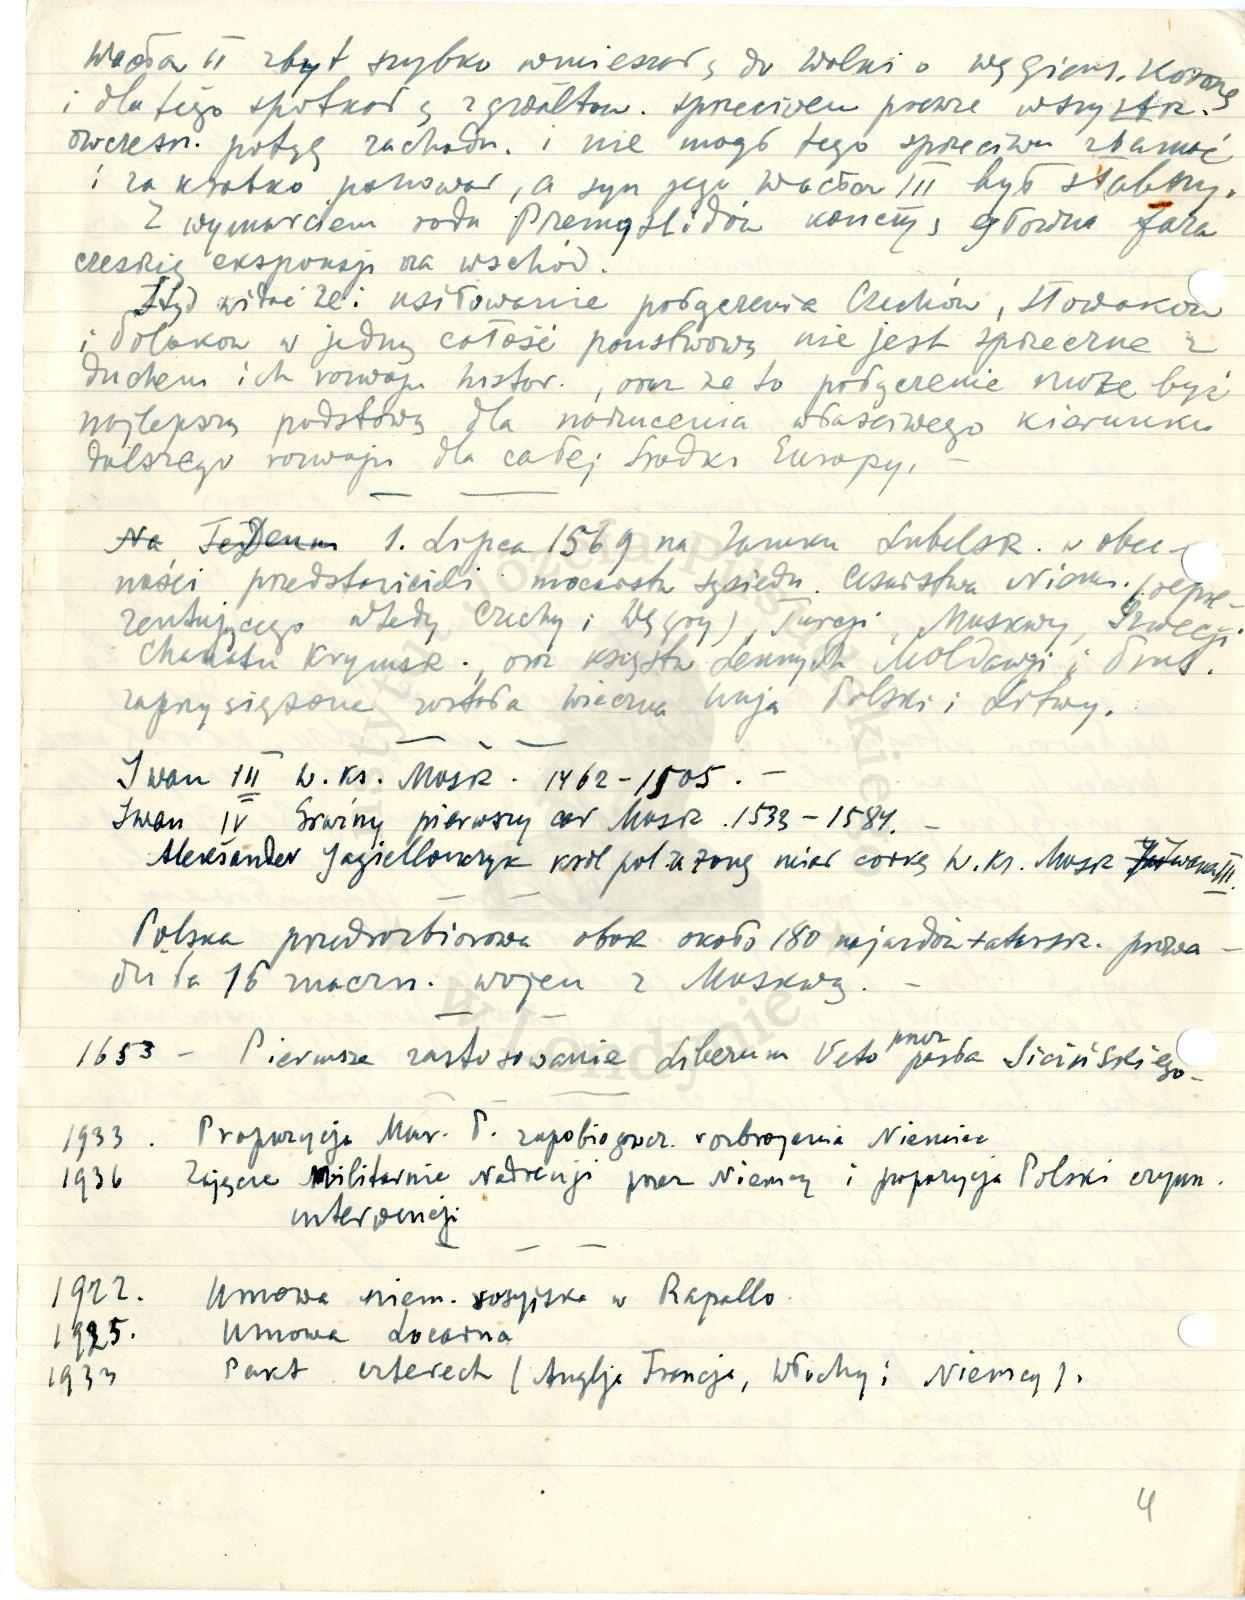 Wacław II zbyt szybko wmieszał ş do walki o węgiers. Koronę
i dlatego spotkał ş z gwałtow. sprzeciwem prawie wszystk.
ówczesn. potęg zachodn. i nie mógł tego sprzeciwu złamać
i za krótko panował, a syn jego Wacław III był słabszy.
Z wymarciem rodu Przemyslidów kończy ş główna faza
czeskiej ekspansji na wschód.
Stąd widać że i usiłowanie połączenia Czechów, Słowaków
i Polaków w jedną całość państwową nie jest sprzeczne z
duchem ich rozwoju histor., oraz że to połączenie może być
najlepszą podstawą dla nadrucenia właściwego kierunku
dalszego rozwoju dla całej środk. Europy. —
Na TeDeum 1. Lipca 1569 na zamku Lubelsk. w obec-
ności przedstawicieli mocarstw sąsiedn. Cesarstwa Niem. (repre-
zentującego wtedy Czechy i Węgry), Turcji, Moskwy, Szwecji
Chanatu Krymsk., oraz księstw lennych Mołdawji i Prus.
zaprzysiężona została wieczna Unja Polski i Litwy.
Iwan III w. Ks. Mosk. 1462-1505. —
Iwan IV Groźny pierwszy car Mosk. 1533-1584. —
Aleksander Jagiellończyk król pol. za żonę miał córkę w. Ks. Mosk Iwana III.
Polska przedrozbiorowa obok około 180 najazdów tatarsk. prowa-
dziła 16 znaczn. wojen z Moskwą. —
1653 — Pierwsze zastosowanie Liberum Veto przez posła Sicińskiego —
1933. Propozycja Mar. P. zapobiegawcz. rozbrojenia Niemiec
1936 Zajęcie militarnie Nadrenji przez Niemcy i propozycja Polski czynn.
interwencji
1922. Umowa niem. rosyjska w Rapallo
1925. Umowa Locarna
1933 Pakt czterech (Anglja Francja, Włochy i Niemcy).
4
Instytut Józefa Piłsudskiego
w Londynie